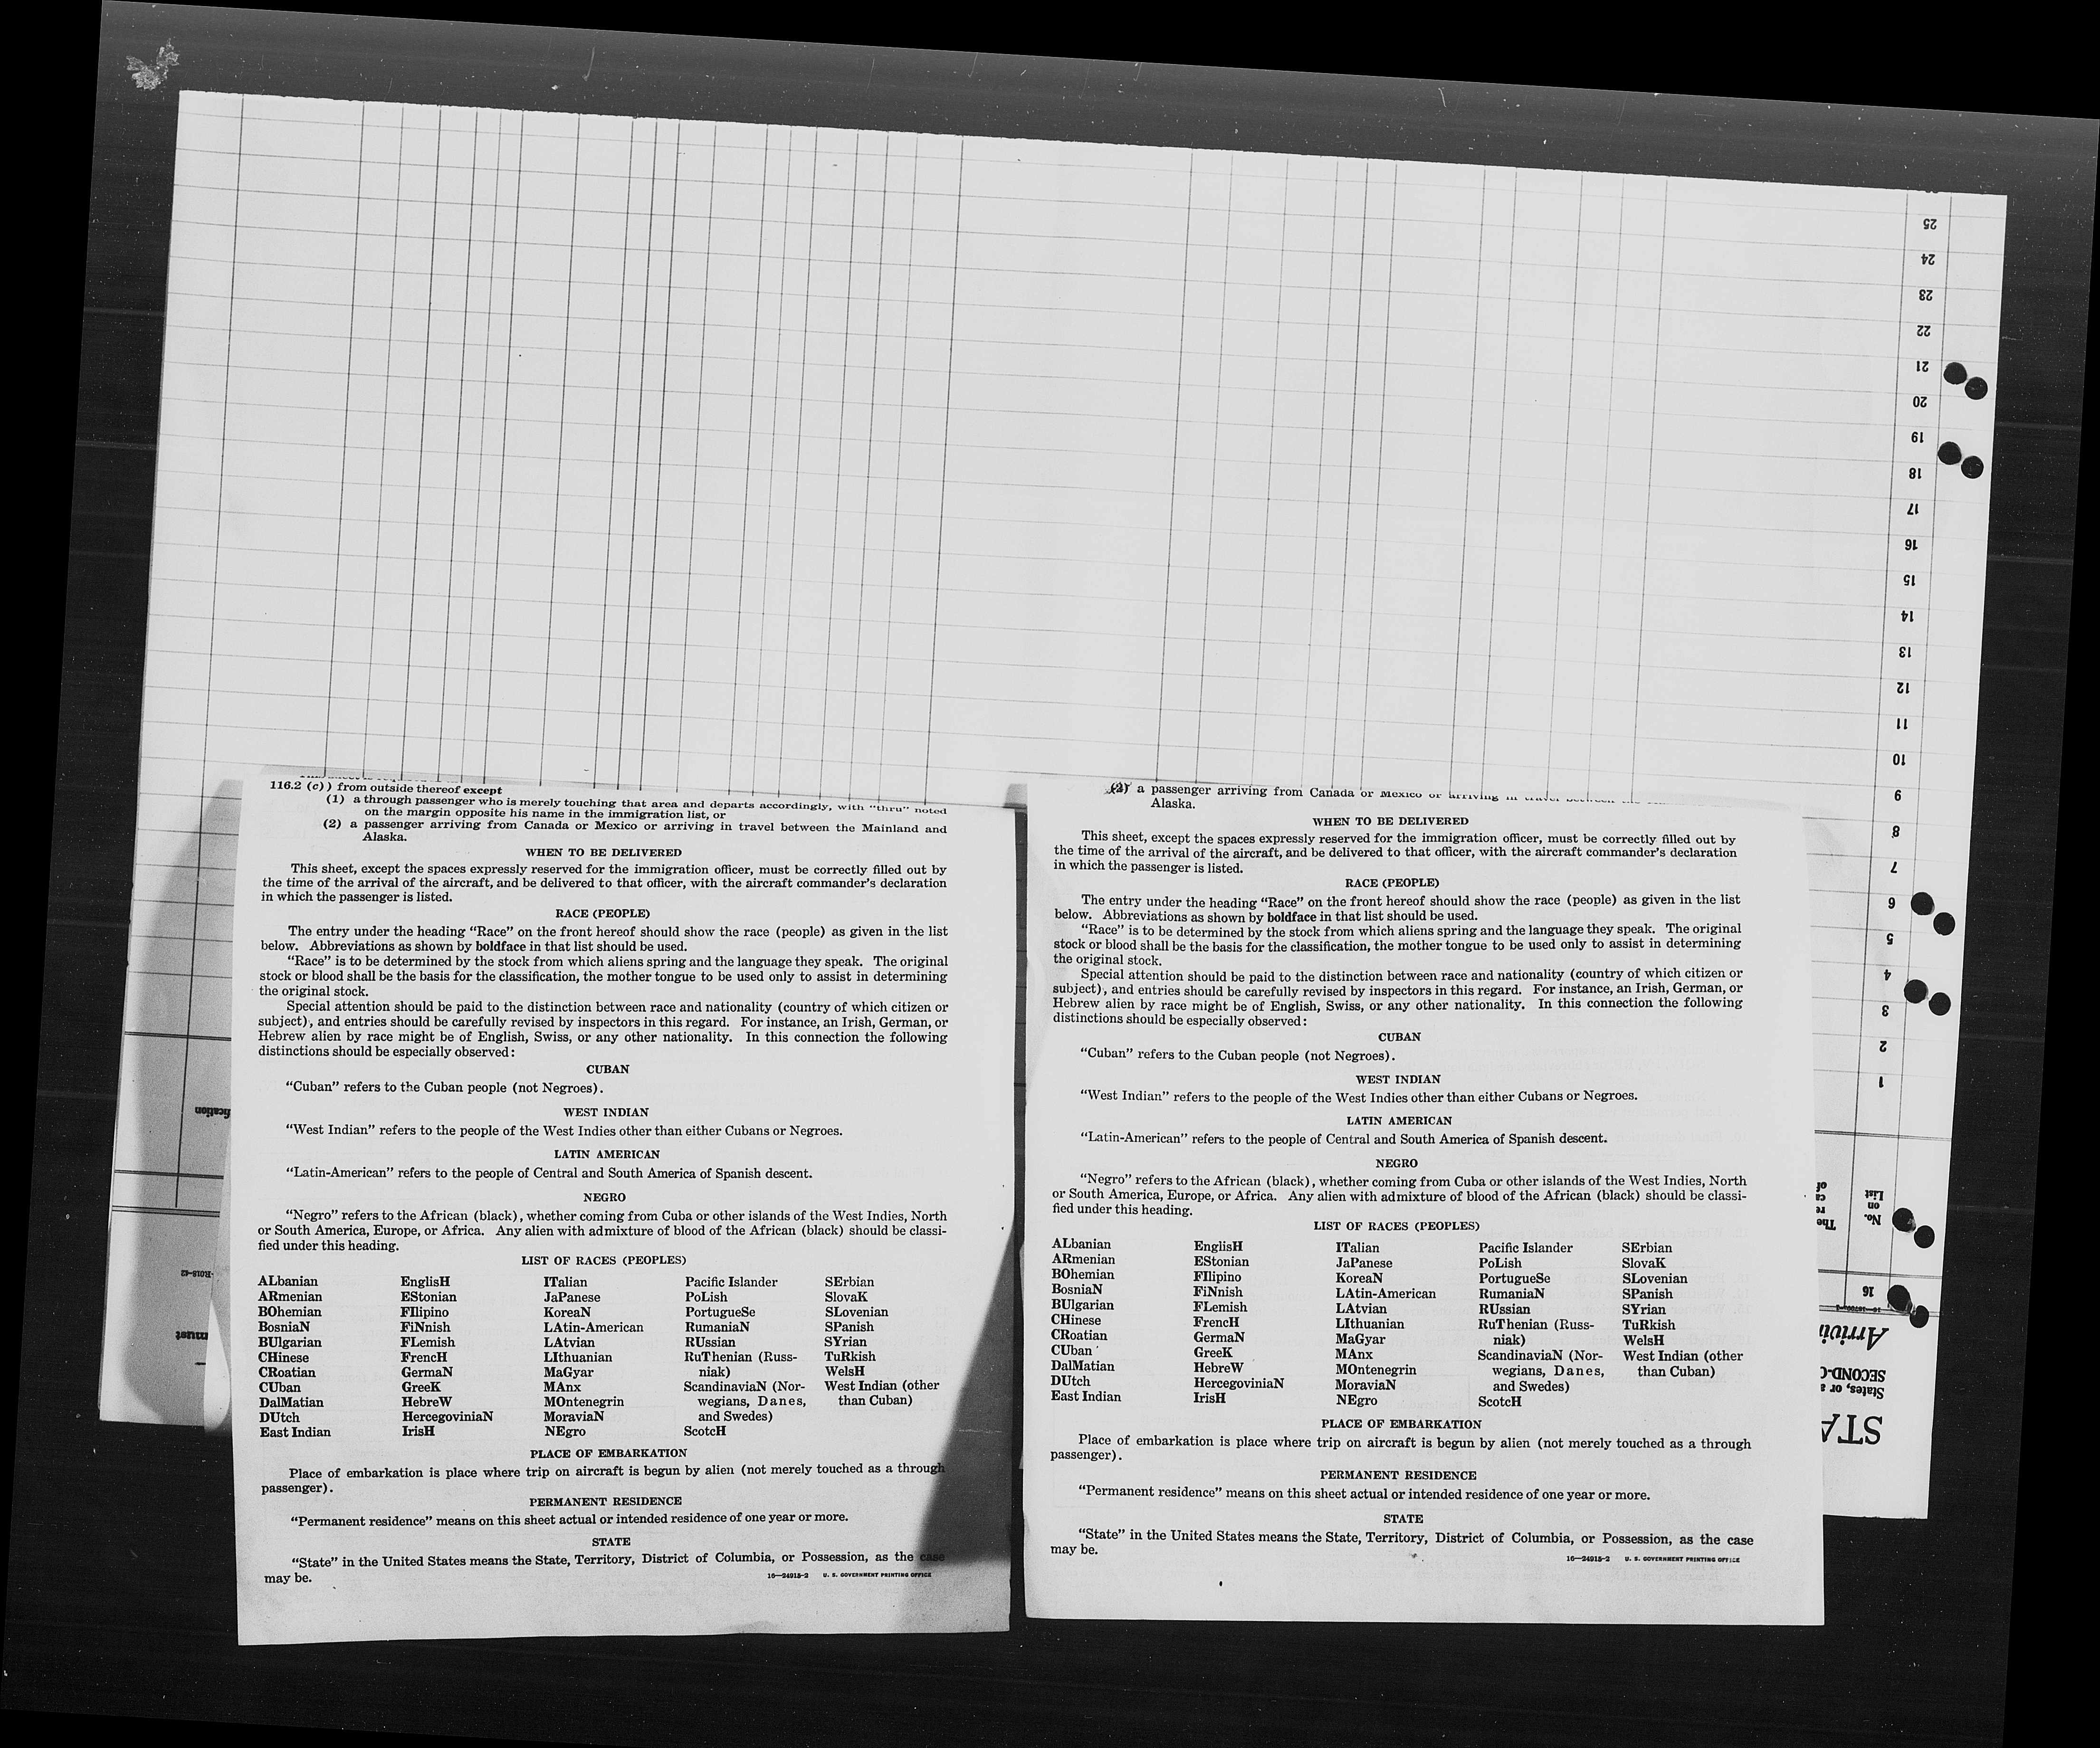 116.2 (c)) from outside thereof except
(1) a through passenger who is merely touching that area and departs accordingly, with "thru" noted
on the margin opposite his name in the immigration list, or
(2) a passenger arriving from Canada or Mexico or arriving in travel between the Mainland and
Alaska.
WHEN TO BE DELIVERED
This sheet, except the spaces expressly reserved for the immigration officer, must be correctly filled out by
the time of the arrival of the aircraft, and be delivered to that officer, with the aircraft commander's declaration
in which the passenger is listed.
RACE (PEOPLE)
The entry under the heading "Race" on the front hereof should show the race (people) as given in the list
below. Abbreviations as shown by boldface in that list should be used.
"Race" is to be determined by the stock from which aliens spring and the language they speak. The original
stock or blood shall be the basis for the classification, the mother tongue to be used only to assist in determining
the original stock.
Special attention should be paid to the distinction between race and nationality (country of which citizen or
subject), and entries should be carefully revised by inspectors in this regard. For instance, an Irish, German, or
Hebrew alien by race might be of English, Swiss, or any other nationality. In this connection the following
distinctions should be especially observed:
CUBAN
"Cuban" refers to the Cuban people (not Negroes).
WEST INDIAN
"West Indian" refers to the people of the West Indies other than either Cubans or Negroes.
LATIN AMERICAN
"Latin-American" refers to the people of Central and South America of Spanish descent.
NEGRO
"Negro" refers to the African (black), whether coming from Cuba or other islands of the West Indies, North
or South America, Europe, or Africa. Any alien with admixture of blood of the African (black) should be classi-
fied under this heading.
LIST OF RACES (PEOPLES)
ALbanian
ARmenian
BOhemian
BosniaN
BUlgarian
CHinese
CRoatian
CUban
DalMatian
DUtch
East Indian
EnglisH
EStonian
FIlipino
FiNnish
FLemish
FrencH
GermaN
GreeK
HebreW
HercegoviniaN
IrisH
ITalian
JaPanese
KoreaN
LAtin-American
LAtvian
LIthuanian
MaGyar
MAnx
MOntenegrin
MoraviaN
NEgro
Pacific Islander
PoLish
PortugueSe
RumaniaN
RUssian
RuThenian (Russ-
niak)
ScandinaviaN (Nor-
wegians, Danes,
and Swedes)
ScotcH
SErbian
SlovaK
SLovenian
SPanish
SYrian
TuRkish
WelsH
West Indian (other
than Cuban)
PLACE OF EMBARKATION
Place of embarkation is place where trip on aircraft is begun by alien (not merely touched as a through
passenger).
PERMANENT RESIDENCE
"Permanent residence" means on this sheet actual or intended residence of one year or more.
STATE
"State" in the United States means the State, Territory, District of Columbia, or Possession, as the case
may be.
16—24915-2 U. S. GOVERNMENT PRINTING OFFICE
(2) a passenger arriving from Canada or Mexico or arriving in travel between the
Alaska.
WHEN TO BE DELIVERED
This sheet, except the spaces expressly reserved for the immigration officer, must be correctly filled out by
the time of the arrival of the aircraft, and be delivered to that officer, with the aircraft commander's declaration
in which the passenger is listed.
RACE (PEOPLE)
The entry under the heading "Race" on the front hereof should show the race (people) as given in the list
below. Abbreviations as shown by boldface in that list should be used.
"Race" is to be determined by the stock from which aliens spring and the language they speak. The original
stock or blood shall be the basis for the classification, the mother tongue to be used only to assist in determining
the original stock.
Special attention should be paid to the distinction between race and nationality (country of which citizen or
subject), and entries should be carefully revised by inspectors in this regard. For instance, an Irish, German, or
Hebrew alien by race might be of English, Swiss, or any other nationality. In this connection the following
distinctions should be especially observed:
CUBAN
"Cuban" refers to the Cuban people (not Negroes).
WEST INDIAN
"West Indian" refers to the people of the West Indies other than either Cubans or Negroes.
LATIN AMERICAN
"Latin-American" refers to the people of Central and South America of Spanish descent.
NEGRO
"Negro" refers to the African (black), whether coming from Cuba or other islands of the West Indies, North
or South America, Europe, or Africa. Any alien with admixture of blood of the African (black) should be classi-
fied under this heading.
LIST OF RACES (PEOPLES)
ALbanian
ARmenian
BOhemian
BosniaN
BUlgarian
CHinese
CRoatian
CUban
DalMatian
DUtch
East Indian
EnglisH
EStonian
FIlipino
FiNnish
FLemish
FrencH
GermaN
GreeK
HebreW
HercegoviniaN
IrisH
ITalian
JaPanese
KoreaN
LAtin-American
LAtvian
LIthuanian
MaGyar
MAnx
MOntenegrin
MoraviaN
NEgro
Pacific Islander
PoLish
PortugueSe
RumaniaN
RUssian
RuThenian (Russ-
niak)
ScandinaviaN (Nor-
wegians, Danes,
and Swedes)
ScotcH
SErbian
SlovaK
SLovenian
SPanish
SYrian
TuRkish
WelsH
West Indian (other
than Cuban)
PLACE OF EMBARKATION
Place of embarkation is place where trip on aircraft is begun by alien (not merely touched as a through
passenger).
PERMANENT RESIDENCE
"Permanent residence" means on this sheet actual or intended residence of one year or more.
STATE
"State" in the United States means the State, Territory, District of Columbia, or Possession, as the case
may be.
16—24915-2 U. S. GOVERNMENT PRINTING OFFICE
STA
States, or a
SECOND-C
Arrivin
16
No.
on
List
The
1
2
3
4
5
6
7
8
9
10
11
12
13
14
15
16
17
18
19
20
21
22
23
24
25
must